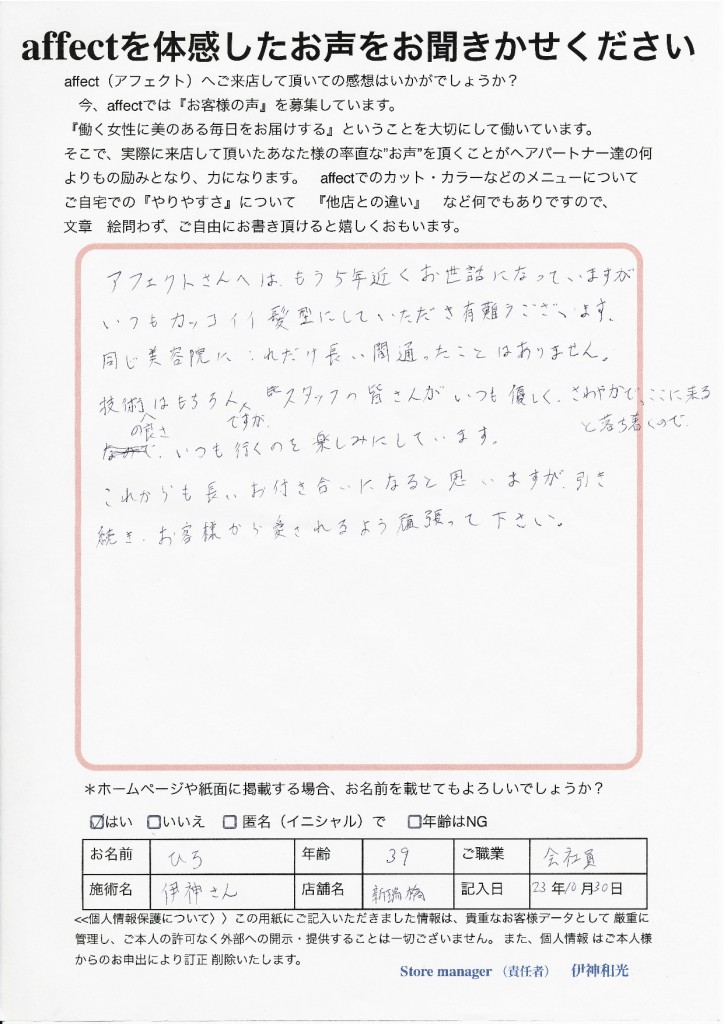 affectを体感したお声をお聞きかせください
affect（アフェクト）へご来店して頂いての感想はいかがでしょうか？
今、affectでは『お客様の声』を募集しています。
『働く女性に美のある毎日をお届けする』ということを大切にして働いています。
そこで、実際に来店して頂いたあなた様の率直な”お声”を頂くことがヘアパートナー達の何
よりもの励みとなり、力になります。　affectでのカット・カラーなどのメニューについて
ご自宅での『やりやすさ』について　『他店との違い』　など何でもありですので、
文章　絵問わず、ご自由にお書き頂けると嬉しくおもいます。
アフェクトさんへは、もう5年近くお世話になっていますが
いつもカッコイイ髪型にしていただき有難うございます。
同じ美容院にこれだけ長い間通ったことはありません。
技術の良さはもちろんですが、スタッフの皆さんがいつも優しく、さわやかで、ここに来ると落ち着くので、
いつも行くのを楽しみにしています。
これからも長いお付き合いになると思いますが、引き
続き、お客様から愛されるよう頑張って下さい。
＊ホームページや紙面に掲載する場合、お名前を載せてもよろしいでしょうか？
☑はい　□いいえ　□ 匿名（イニシャル）で　□年齢はNG
お名前　ひろ　年齢　39　ご職業　会社員
施術名　伊神さん　店舗名　新瑞橋　記入日　23 年10 月30日
<<個人情報保護について〉〉この用紙にご記入いただきました情報は、貴重なお客様データとして 厳重に
管理し、ご本人の許可なく外部への開示・提供することは一切ございません。また、個人情報 はご本人様
からのお申出により訂正 削除いたします。
Store manager （責任者）　伊神和光